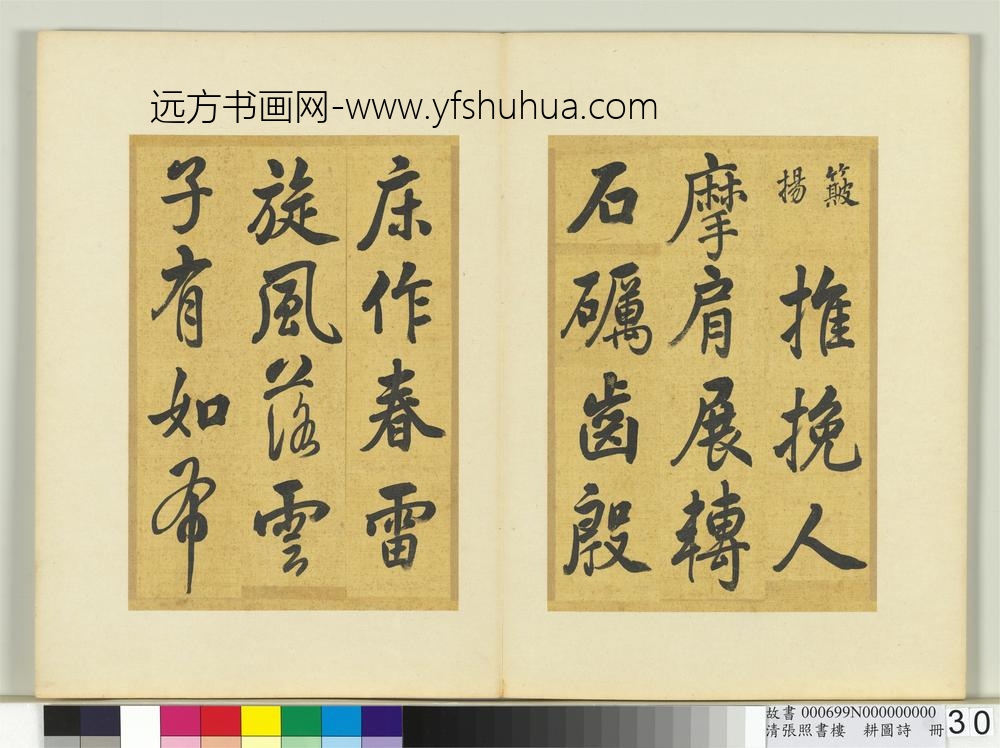 远方书画网-www.yfshuhua.com
簸
揚
推挽人
摩肩展轉
石礪齒殷
床作春雷
旋風落雲
子有如布
故書 000699N000000000
清張照書樓 耕圖詩 冊
30